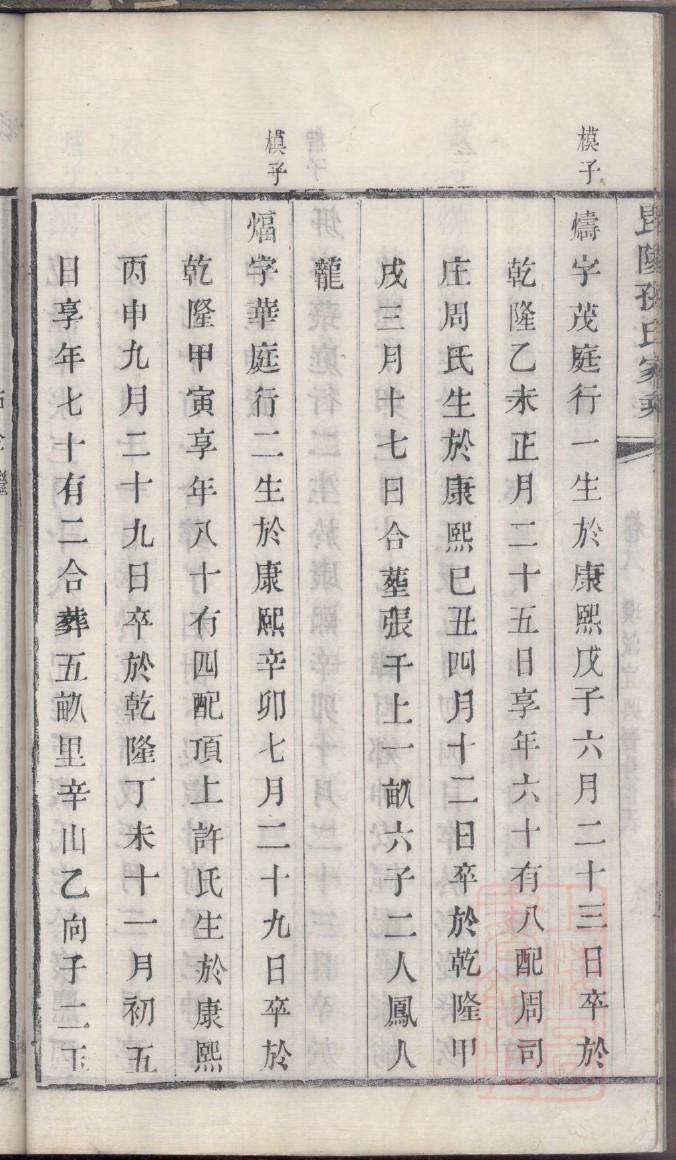 毘陵孫氏家乘
模子
燽字茂庭行一生於康熙戊子六月二十三日卒於
乾隆乙未正月二十五日享年六十有八配周司
庄周氏生於康熙己丑四月十二日卒於乾隆甲
戌三月十七日合塟張干上一畝六子二人鳳人
龍
模子
煏字華庭行二生於康熙辛卯七月二十九日卒於
乾隆甲寅享年八十有四配頂上許氏生於康熙
丙申九月二十九日卒於乾隆丁未十一月初五
日享年七十有二合葬五畝里辛山乙向子二玉